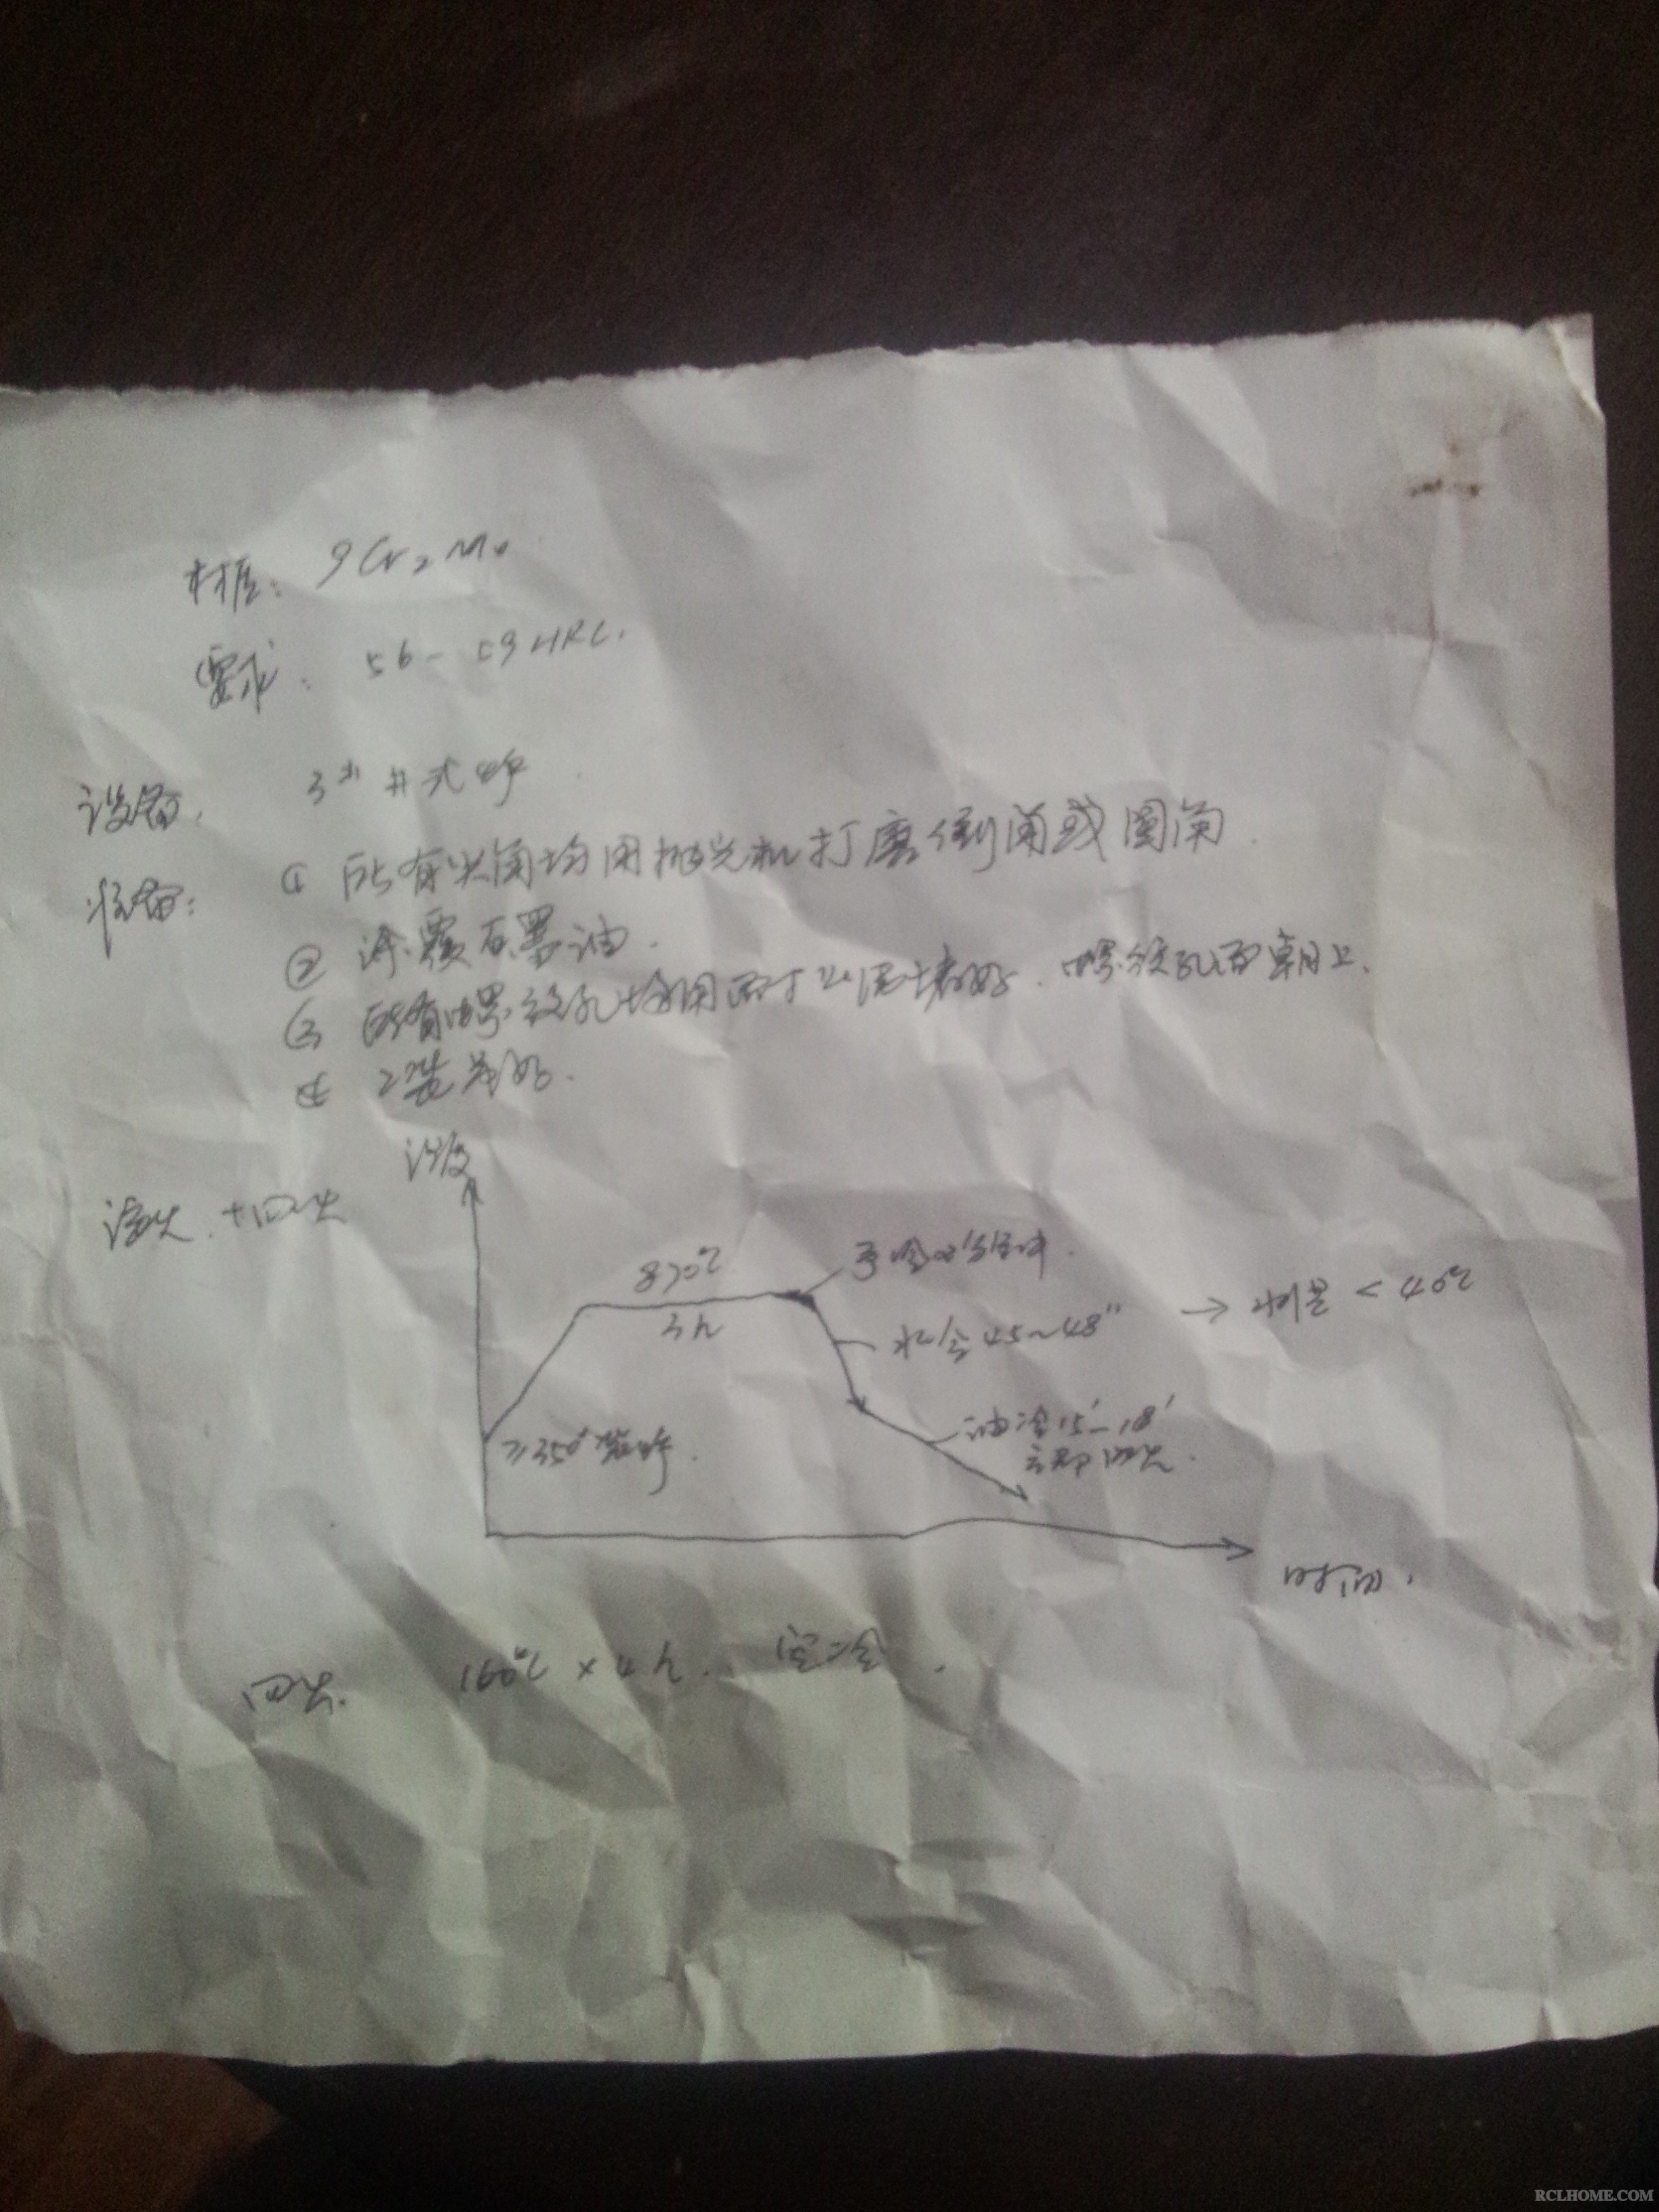 材质: 9Cr2Mo
要求: 56-59HRC.
设备: 3# 井式炉
准备: ① 所有尖角均用抛光机打磨倒角或圆角.
② 涂覆石墨油.
③ 所有螺纹孔均用耐火泥堵好. 螺纹孔面朝上.
④ 工装吊好.
温度
淬火+回火
870℃
3h
予冷
水冷45~48"
→ 水温<40℃
油冷15'-18'
立即回火.
≥350°装炉.
时间.
回火. 160℃×4h. 空冷.
RCLHOME.COM